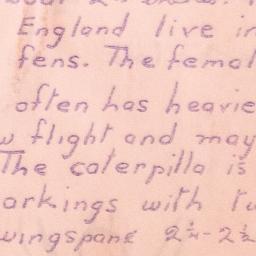 England live in
fens. The femal
often has heavie
w flight and may
The caterpilla is
arkings with tu
wingspans 2¼-2½